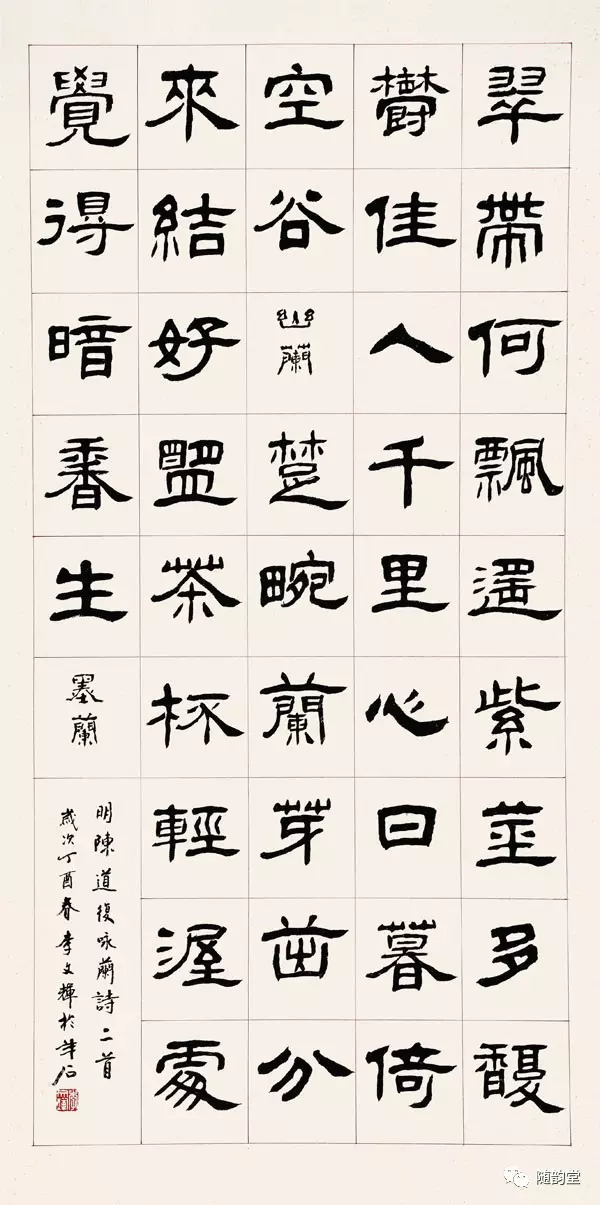 翠帶何飄遥紫莖多馥
鬱佳人千里心日暮倚
空谷幽蘭楚畹蘭芽茁分
來結好盟茶杯輕渥處
覺得暗香生墨蘭
明陳道復咏蘭詩二首
歲次丁酉春李文輝於石
随韵堂